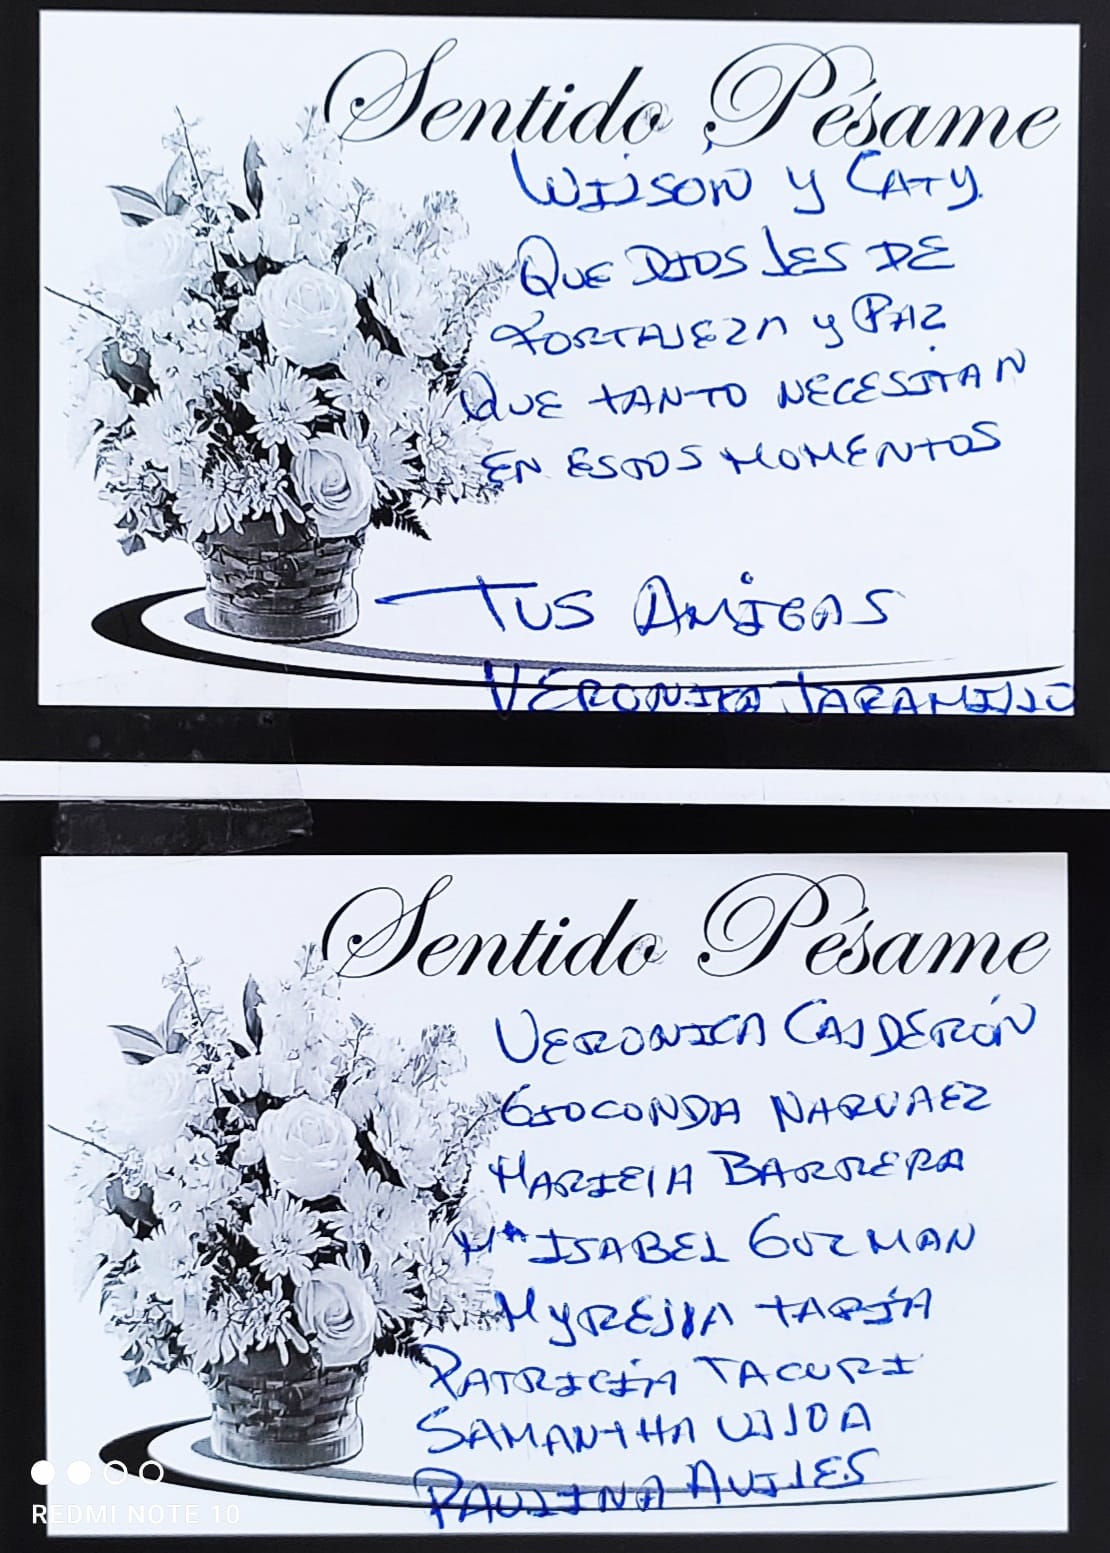 Sentido Pésame
WILSON y CATY
QUE DIOS LES DE
FORTALEZA y PAZ
QUE TANTO NECESITAN
EN ESTOS MOMENTOS
TUS AMIGAS
VERONICA JARAMILLO
Sentido Pésame
VERONICA CALDERÓN
GIOCONDA NARVAEZ
MARIELA BARRERA
Mª ISABEL GUZMAN
MYREYA TAPIA
PATRICIA TACURI
SAMANTHA
PAULINA AVILES
REDMI NOTE 10